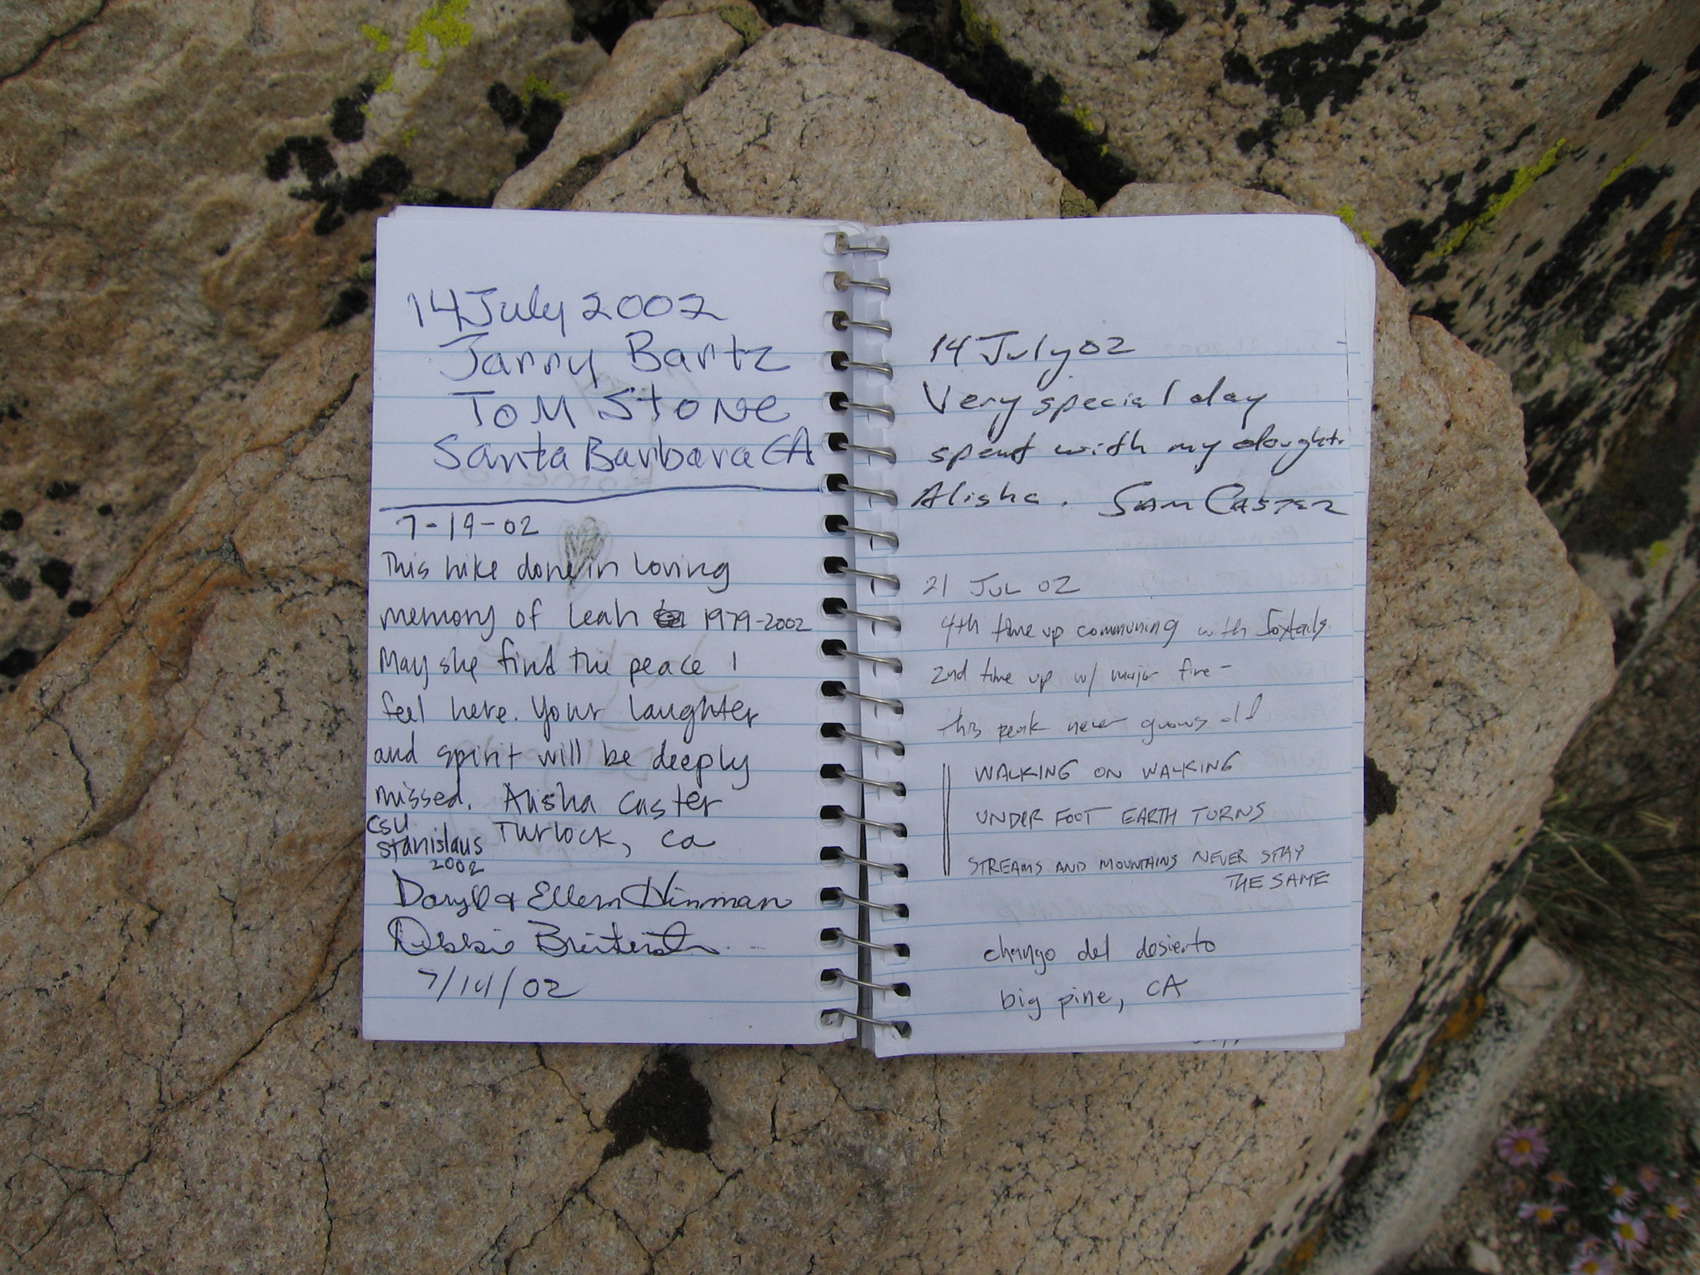 14 July 2002
Bartz
Tom Stone
Santa Barbara CA
7-19-02
This hike done in loving
memory of Leah 1979-2002
May she find the peace I
feel here. Your laughter
and spirit will be deeply
missed. Alisha Caster
CSU
Stanislaus Turlock, Ca
2002
Daryl & Ellen Hinman
Debbie
7/14/02
14 July 02
Very special day
spent with my daught
Alisha. Sam Caster
21 Jul 02
4th time up communing with foxtails
2nd time up w/ major fire -
this peak never grows old
WALKING ON WALKING
UNDER FOOT EARTH TURNS
STREAMS AND MOUNTAINS NEVER STAY
THE SAME
chango del desierto
big pine, CA